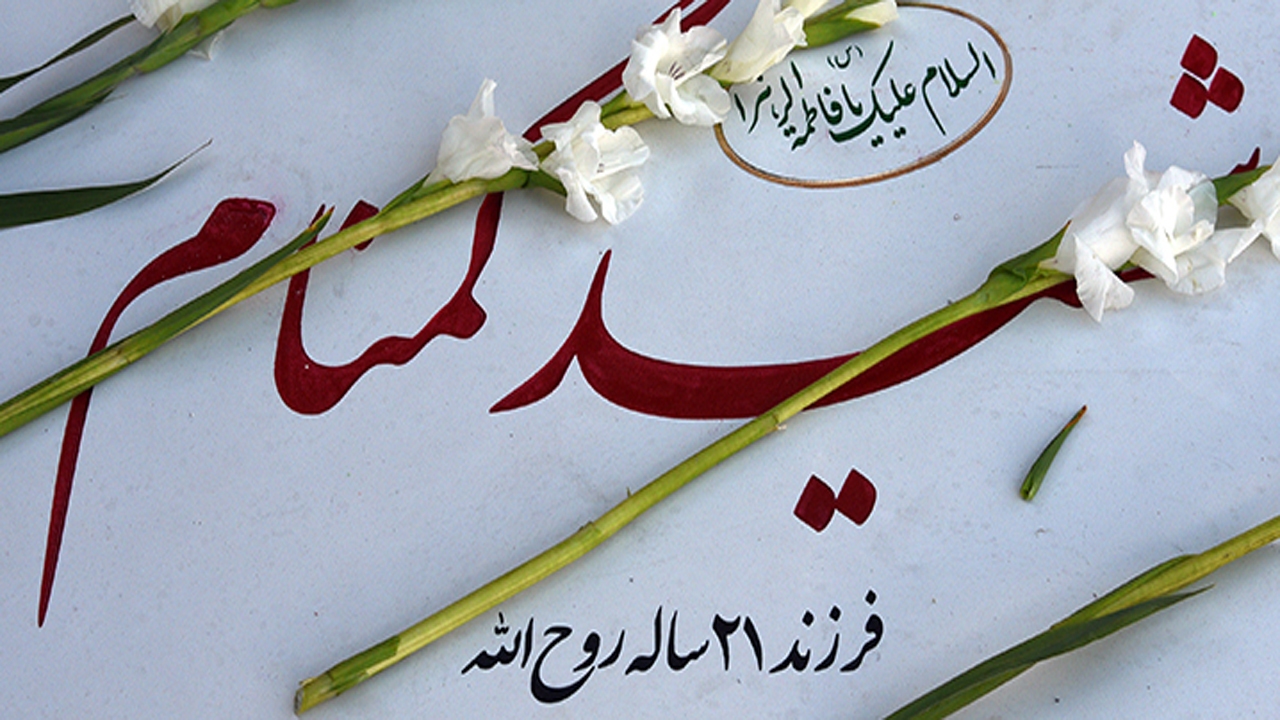 السلام علیک یا فاطمة الزهرا (س)
شهید گمنام
فرزند ۲۱ ساله روح الله